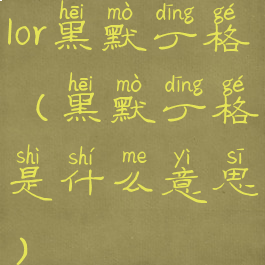 hēi mò dīng gé
lor黑默丁格
hēi mò dīng gé
(黑默丁格
shì shí me yì sī
是什么意思
)